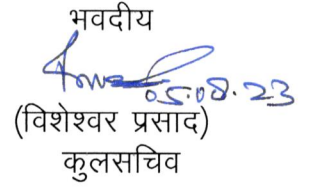 भवदीय
05.08.23
(विशेश्वर प्रसाद)
कुलसचिव